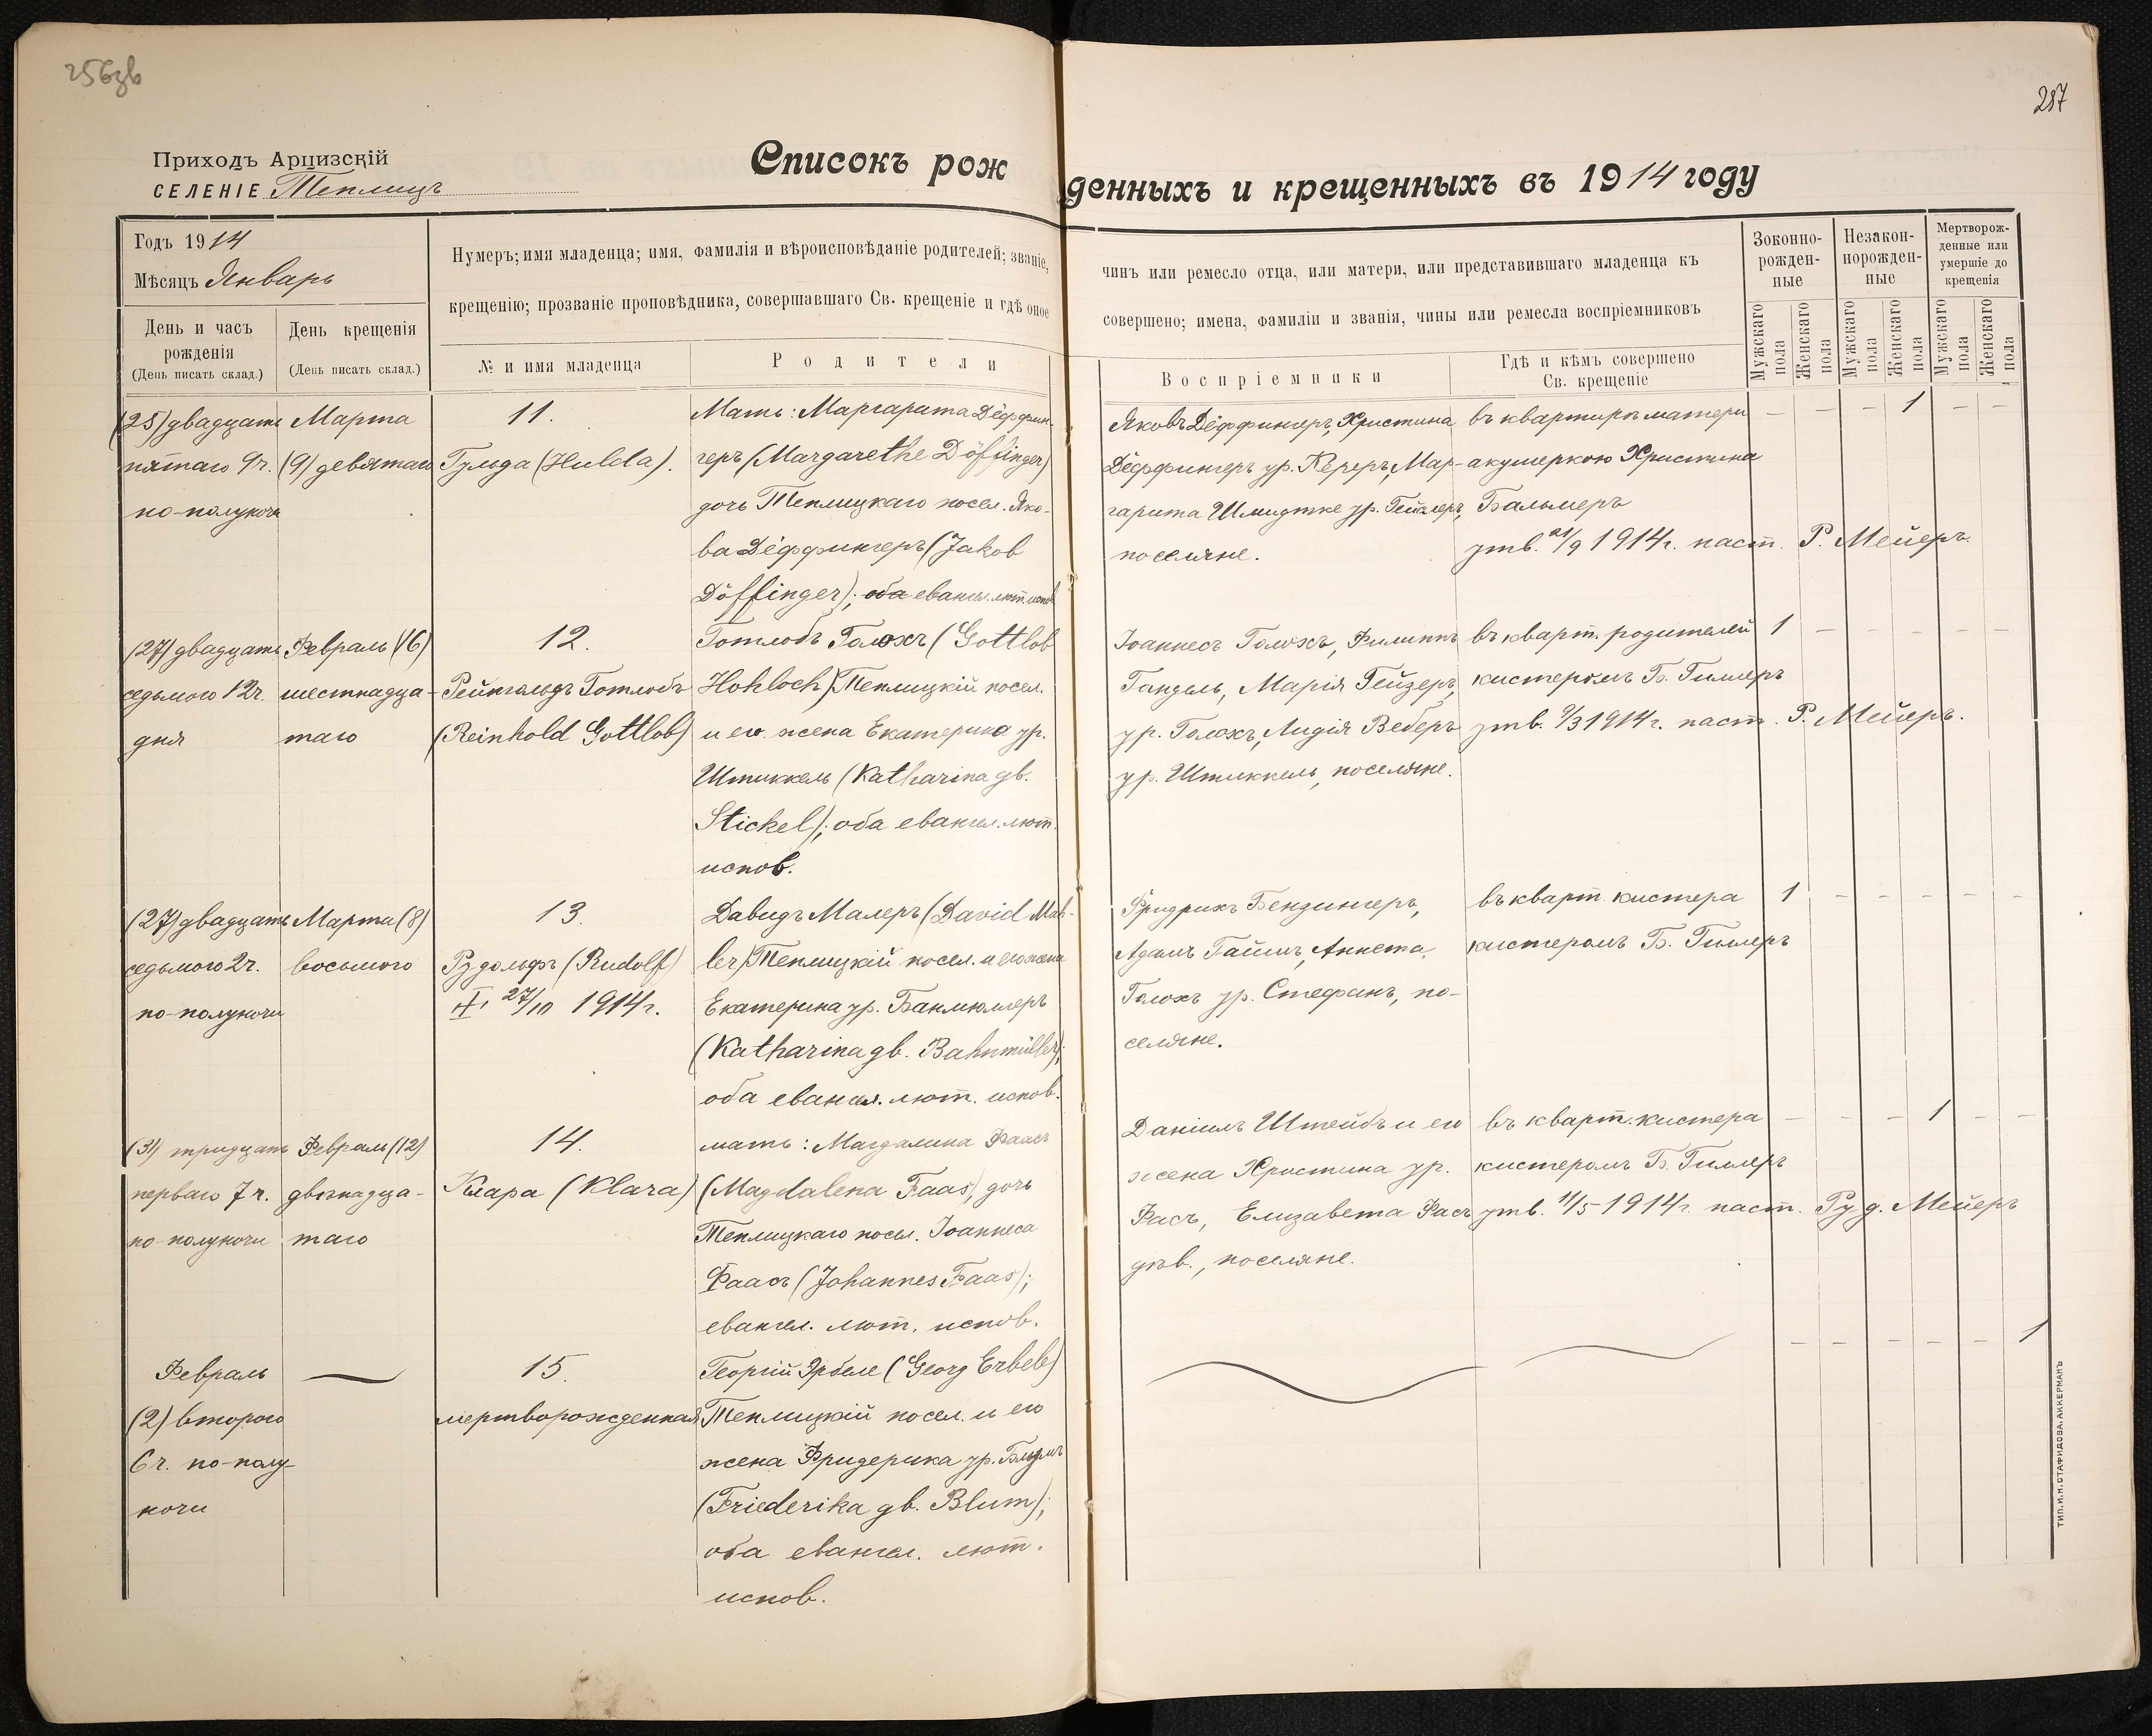 256зв
287
Приходъ Арцизскій
СЕЛЕНІЕ Теплицъ
Списокъ рожденныхъ и крещенныхъ въ 1914 году
Годъ 1914
Мѣсяцъ Январь
День и часъ рожденія
(День писать склад.)
День крещенія
(День писать склад.)
Нумеръ; имя младенца; имя, фамилія и вѣроисповѣданіе родителей; званіе, чинъ или ремесло отца, или матери, или представившаго младенца къ
крещенію; прозваніе проповѣдника, совершавшаго Св. крещеніе и гдѣ оное совершено; имена, фамиліи и званія, чины или ремесла воспріемниковъ
№ и имя младенца
Родители
Воспріемники
Гдѣ и кѣмъ совершено
Св. крещеніе
Зоконно-
рожден-
ные
Незакон-
норожден-
ные
Мертворож-
денные или
умершіе до
крещенія
Мужскаго пола
Женскаго пола
Мужскаго пола
Женскаго пола
Мужскаго пола
Женскаго пола
(25) двадцать
пятаго 9 ч.
по-полуночи
Марта
(9) девятаго
11.
Гульда (Hulda).
Мать: Маргарита Дёффин-
геръ (Margarethe Döffinger)
дочь Теплицкаго посел. Яко-
ва Дёффингеръ (Jakob
Döffinger); оба евангел. лют. испов.
Яковъ Дёффингеръ, Христина
Дёффингеръ ур. Кереръ, Мар-
гарита Шмидтке ур. Гейзлеръ,
поселяне.
въ квартирѣ матери
акушеркою Христина
Бальмеръ
утв. 21/9 1914 г. паст. Р. Мейеръ.
— — — 1 — —
(27) двадцать
седьмого 12 ч.
дня
Февраль (16)
шестнадца-
таго
12.
Рейнгольдъ Готлобъ
(Reinhold Gottlob)
Готлобъ Голохъ (Gottlob
Hohloch) Теплицкій посел.
и его жена Екатерина ур.
Штиккель (Katharina gb.
Stickel); оба евангел. лют.
испов.
Іоаннесъ Голохъ, Филиппъ
Гандель, Марія Гейзеръ,
ур. Голохъ, Лидія Веберъ
ур. Штиккель, поселяне.
въ кварт. родителей
кистеромъ Б. Гиллеръ
утв. 9/3 1914 г. паст. Р. Мейеръ.
1 — — — — —
(27) двадцать
седьмого 2 ч.
по-полуночи
Марта (8)
восьмого
13.
Рудольфъ (Rudolf)
27/10 1914 г.
Давидъ Малеръ (David Mah-
ler) Теплицкій посел. и его жена
Екатерина ур. Банмюллеръ
(Katharina gb. Bahnmüller);
оба евангел. лют. испов.
Фридрихъ Бензингеръ,
Адамъ Гаймъ, Аннета
Голохъ ур. Стефанъ, по-
селяне.
въ кварт. кистера
кистеромъ Б. Гиллеръ
1 — — — — —
(31) тридцать
перваго 7 ч.
по-полуночи
Февраль (12)
двѣнадца-
таго
14.
Клара (Klara)
мать: Магдалина Фаасъ
(Magdalena Faas), дочь
Теплицкаго посел. Іоаннеса
Фаасъ (Johannes Faas);
евангел. лют. испов.
Даніилъ Штейбъ и его
жена Христина ур.
Фасъ, Елизавета Фасъ
дѣв., поселяне.
въ кварт. кистера
кистеромъ Б. Гиллеръ
утв. 11/5 1914 г. паст. Руд. Мейеръ
— — — 1 — —
Февраль
(2) второго
6 ч. по-полу-
ночи
—
15.
мертворожденная
Георгій Эрбеле (Georg Erbele)
Теплицкій посел. и его
жена Фридерика ур. Блумъ
(Friederika gb. Blum);
оба евангел. лют.
испов.
— — — — — 1
ТИП. И. Н. СТАФИДОВА. АККЕРМАНЪ